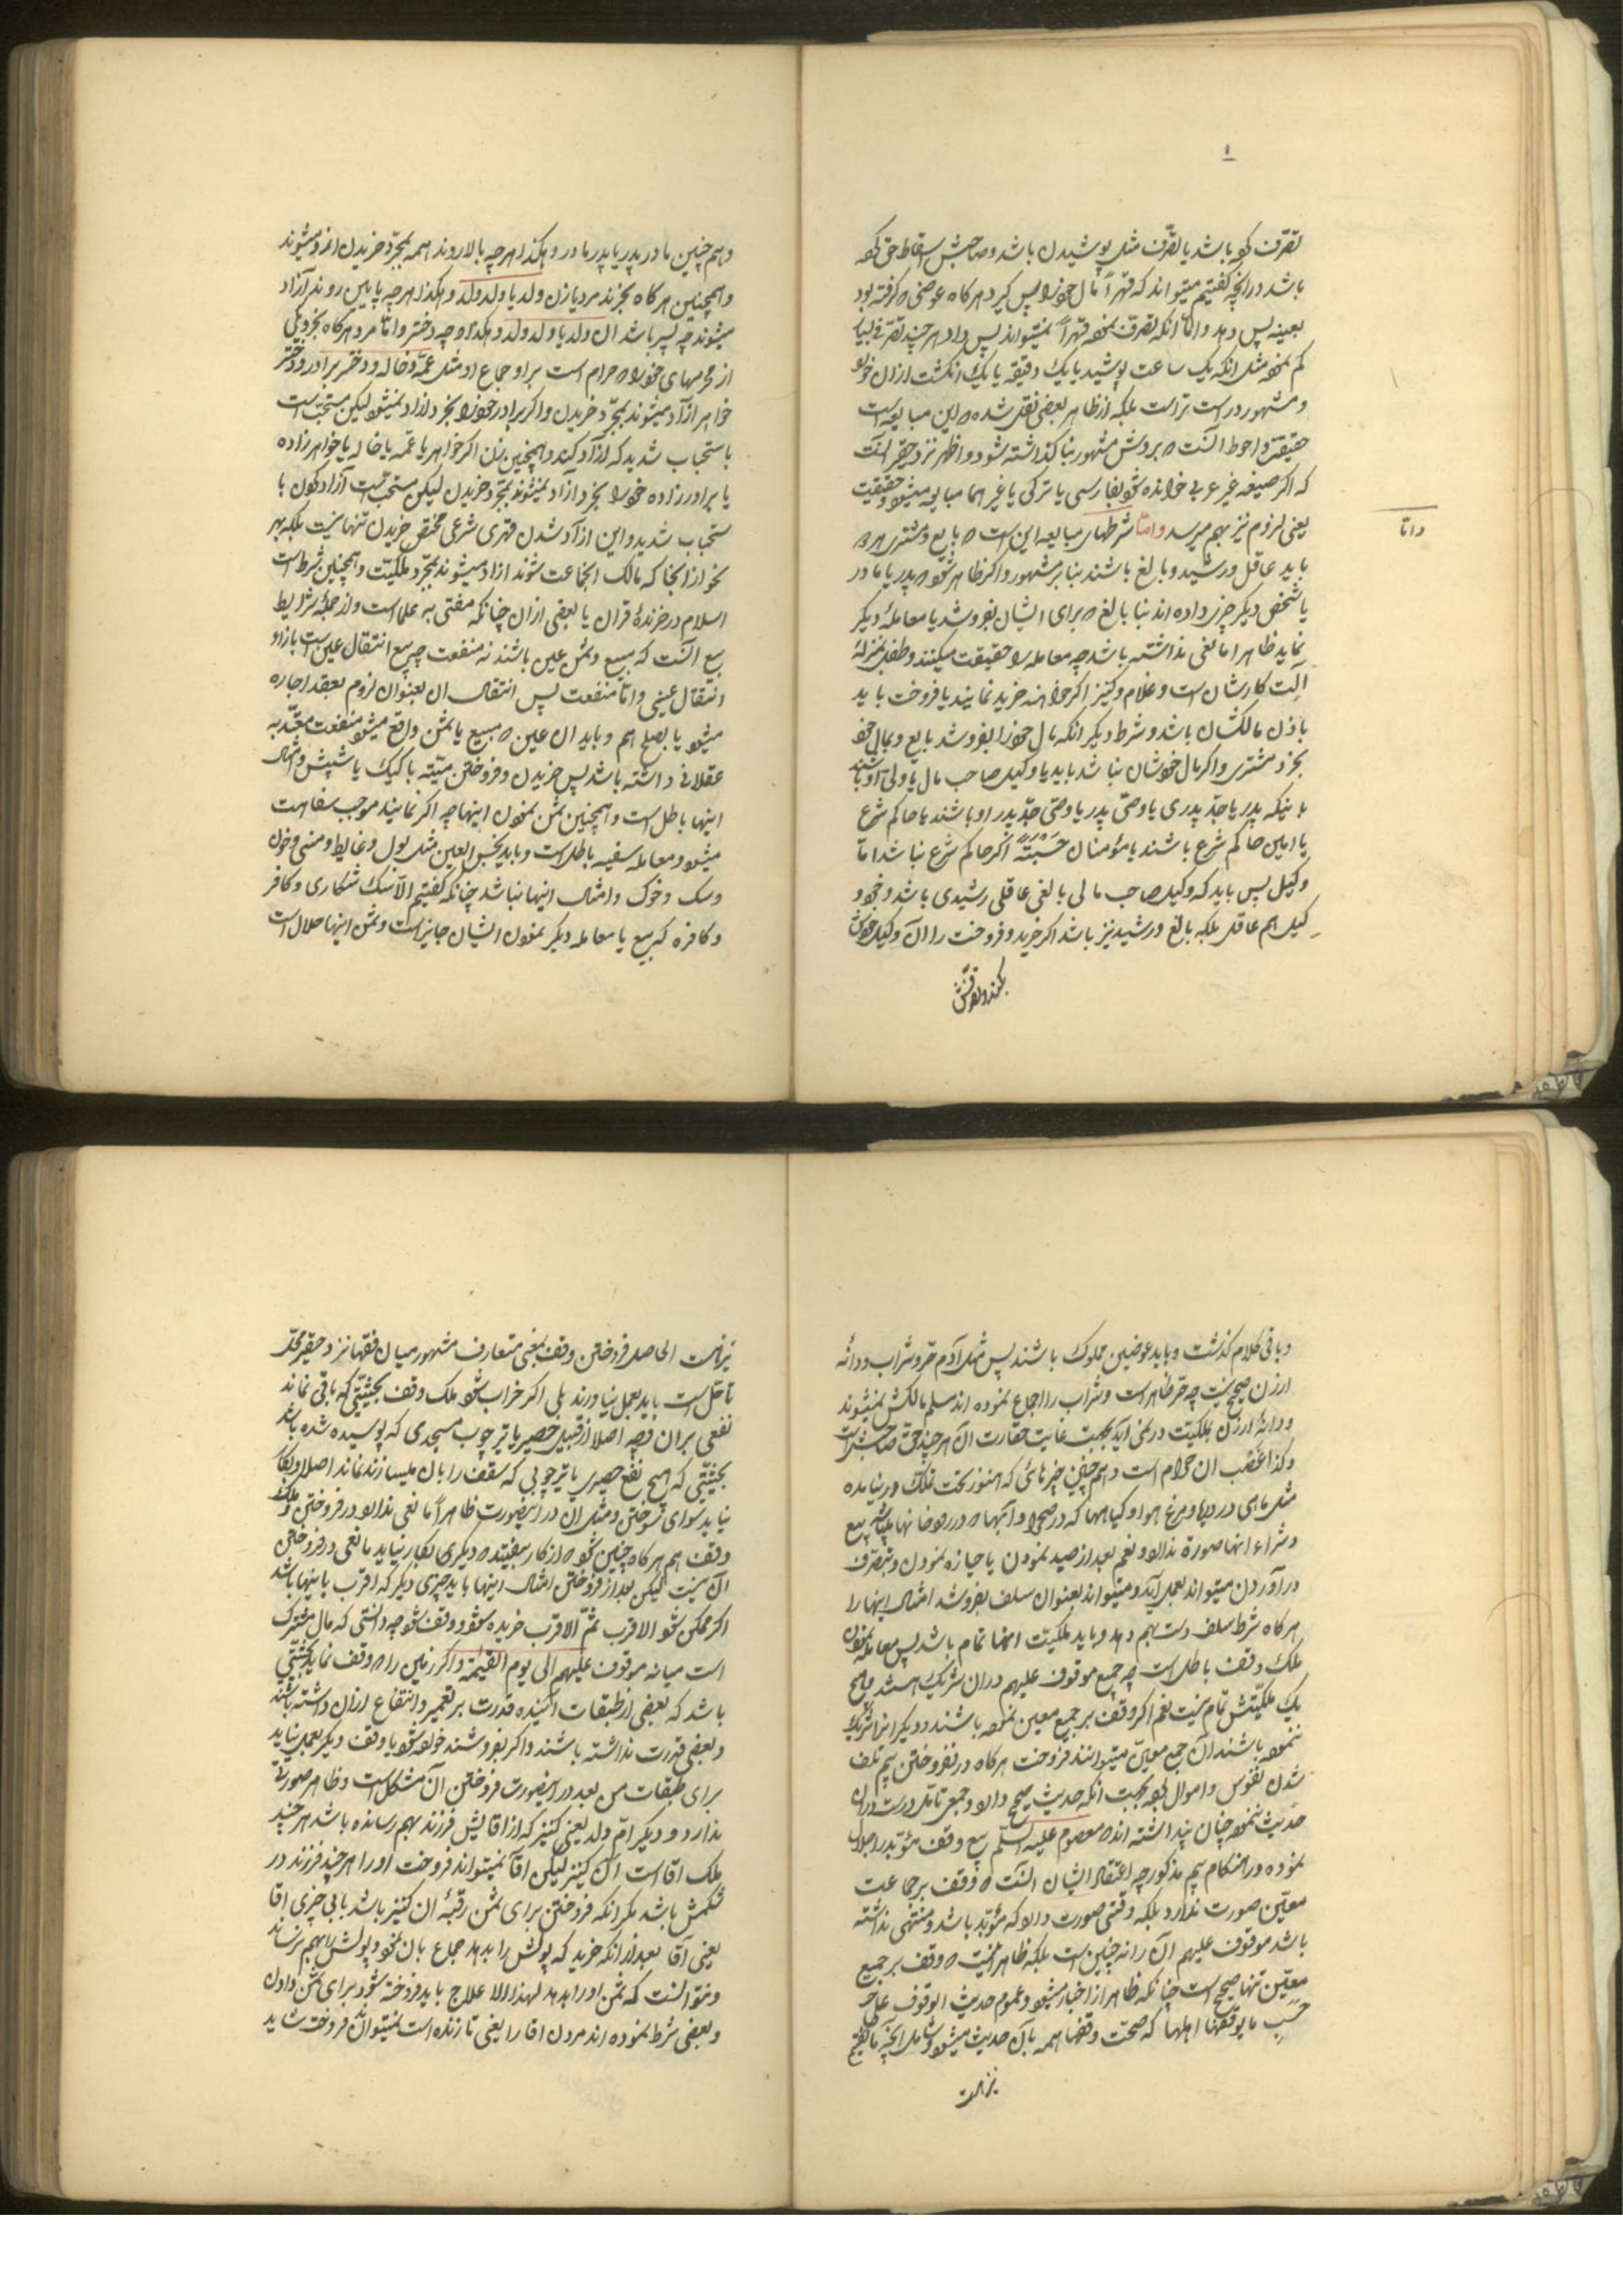 تصرّف کو باشد یا تصرّف مثل پوشیدن باشد و صاحبش اسقاط حق
باشد در انچه کفتیم میتواند که قهراً مال خودرا پس کیرد هرکاه عوضی کرفته بود
بعینه پس دهد و امّا آنکه تصرّف نموده قهراً نمیتواند پس داد هر چند تصرّف بسیار
کم نموده مثل انکه یک ساعت پوشید یا یک دقیقه یا یک انکشت ازان
و مشهور درست تراست بلکه از ظاهر بعضی نقل شده این مبایعه است
حقیقت و احوط آنست بروش مشهور بنا کذاشته شود و اظهر نزد حقیر آنست
که اکر صیغه غیر عربی خوانده شود بفارسی یا ترکی یا غیر انها مبایعه میشود حقیقت
یعنی لزوم نیز بهم میرسد و امّا شرطهای مبایعه این است بایع و مشتری هر دو
باید عاقل و رشید و بالغ باشند بنابر مشهور و اکر ظاهر شود پدر یا مادر
یا شخص دیکر چیزی داده اند بنا بالغ برای ایشان بفروشد یا معاملهٔ دیکر
نماید ظاهرا مانعی نداشته باشد چه معامله را حقیقت میکنند و طفل بمنزلهٔ
آلت کارشان است و غلام و کنیز اکر خواهند خرید نمایند یا فروخت باید
باذن مالکشان باشد و شرط دیکر انکه مال خودرا بفروشد بایع و بمال خود
بخرد مشتری و اکر مال خودشان نباشد باید یا وکیل صاحب مال یا ولی او باشند
باینکه پدر یا جدّ پدری یا وصیّ پدر یا وصیّ جدّ پدر او باشند یا حاکم شرع
یا امین حاکم شرع باشند یا مؤمنان حسبةً اکر حاکم شرع نباشد امّا
وکیل پس باید که وکیل صاحب مالی بالغی عاقلی رشیدی باشد و خود
کیل هم عاقل بلکه بالغ و رشید نیز باشد اکر خرید و فروخت را آن وکیل خودش
بکند و تصرّفش
و امّا
وهم چنین مادر پدر یا پدر مادر و هکذا هرچه بالا روند همه بمجرّد خریدن آزاد میشوند
وهمچنین هرکاه بخرند مرد یا زن ولد یا ولد ولد و هکذا هرچه پایین روند آزاد
میشوند چه پسر باشد ان ولد یا ولد ولد و هکذا و چه دختر و امّا مرد هرکاه بخرد یکی
از محرمهای خودرا حرام است براو جماع او مثل عمّه و خاله و دختر برادر و دختر
خواهر آزاد میشوند بمجرّد خریدن و اکر برادر خودرا بخرد آزاد نمیشود لیکن مستحبّ است
باستحباب شدید که آزاد کند و همچنین زن اکر خواهر یا عمّه یا خاله یا خواهرزاده
یا برادرزاده خودرا بخرد آزاد نمیشوند بمجرّد خریدن لیکن مستحبّ است آزاد کردن با
ستحباب شدید و این آزاد شدن قهری شرعی مختصّ خریدن تنها نیست بلکه بهر
نحو از انحا که مالک انجماعت شوند آزاد میشوند بمجرّد ملکیّت و همچنین شرط است
اسلام در خرندهٔ قران یا بعضی ازان چنانکه مفتی به علما است و از جملهٔ شرایط
بیع آنست که مبیع و ثمن عین باشند نه منفعت چه بیع انتقال عین است بازاء
انتقال عینی و امّا منفعت پس انتقال ان بعنوان لزوم بعقد اجاره
میشود یا بصلح هم و باید ان عین مبیع یا ثمن واقع میشود منفعت معتدّ به
عقلائی داشته باشد پس خریدن و فروختن میّته یا کیک یا شپش و امثال
اینها باطل است و همچنین ثمن نمودن اینها چه اکر نمایند موجب سفاهت
میشود و معامله سفیه باطل است و باید نجس العین مثل بول و غایط و منی و خون
و سک و خوک و امثال اینها نباشد چنانکه کفتیم الّا سک شکاری و کافر
و کافره که بیع یا معامله دیکر نمودن ایشان جایز است و ثمن اینها حلال است
و باقی کلام کذشت و باید عوضین مملوک باشند پس مثل آدم حر و شراب و دانه
ارزن صحیح نیست چه حرّ ظاهر است و شراب را اجماع نموده اند مسلم مالکش نمیشوند
و دانهٔ ارزن بملکیّت در نمی آید بجهت غایت حقارت آن هر چند حق صاحبش است
و کذا غصب ان حرام است و هم چنین چیزهائی که هنوز بتحت تملک در نیامده
مثل ماهی در دریا و مرغ هوا و کیاهها که در صحرا و آبها در رودخانها میباشد بیع
و شراء انها صورة ندارد و نعم بعد از صید نمودن یا حیازه نمودن و بتصرّف
درآوردن میتواند بعمل آید و میتواند بعنوان سلف بفروشد امثال اینها را
هرکاه شرط سلف دست بهم دهد و باید ملکیّت انها تمام باشد پس معامله نمودن
ملک وقف باطل است چه جمیع موقوف علیهم دران شریک هستند و هیچ
یک ملکیّتش تمام نیست نعم اکر وقف بر جمیع معین نموده باشند و دیکرانرا شریک
ننموده باشند آن جمع معیّن میتوانند فروخت هرکاه در نفروختن بیم تلف
شدن نفوس و اموال بود بجهت انکه حدیث صحیح دارد و جمعی تامّل درست دران
حدیث ننموده چنان پنداشته اند معصوم علیه السلام بیع وقف مؤبّد را حلال
نموده در هنکام بیم مذکور چه اعتقاد ایشان آنست وقف بر جماعت
معیّن صورت ندارد بلکه وقفی صورت دارد که مؤبّد باشد و منتهی نداشته
باشد موقوف علیهم آن را نه چنین است بلکه ظاهر اینست وقف بر جمیع
معیّن تنها صحیح است چنانکه ظاهر از اخبار میشود و عموم حدیث الوقوف علی
حسب ما یوقفها اهلها که صحّت وقفها همه بآن حدیث میشود شامل آنچه ما کفتیم
نیز هست
نیز هست الحاصل فروختن وقف بمعنی متعارف مشهور میان فقها نزد حقیر محلّ
تأمّل است باید بعمل نیاورند بلی اکر خراب شود ملک وقف بحیثیّتی که باقی نماند
نفعی بران وجه اصلا از قبیل حصیر یا تیر چوب مسجدی که پوسیده شده باشد
بحیثیّتی که هیچ نفع حصیری یا تیر چوبی که سقف را بان میسازند نماند اصلا و بکار
نیاید سوای سوختن و مثل ان در اینصورت ظاهراً مانعی ندارد در فروختن و ملک
وقف هم هرکاه چنین شود از کار بیفتد دیکر بکار نیاید مانعی در فروختن
آن نیست لیکن بعد از فروختن امثال اینها باید چیزی دیکر که اقرب باینها باشد
اکر ممکن شود الاقرب ثمّ الاقرب خریده شود و وقف شود چه دانستی که مال مشترک
است میانه موقوف علیهم الی یوم القیمة و اکر زمین را وقف نماید بحیثیّتی
باشد که بعضی از طبقات آینده قدرت بر تعمیر و انتفاع ازان داشته باشند
و بعضی قدرت نداشته باشند و اکر بفروشند خوانده شود یا وقف دیکر بعمل نیاید
برای طبقات من بعد در اینصورت فروختن آن مشکل است و ظاهر صورتی
ندارد و دیکر امّ ولد یعنی کنیز که از اقایش فرزند بهم رسانده باشد هر چند
ملک اقا است آن کنیز لیکن اقا نمیتواند فروخت اورا هر چند فرزند در
شکمش باشد مکر انکه فروختن برای ثمن رقبهٔ ان کنیز باشد بابی چیزی اقا
یعنی آقا بعد از انکه خرید که پولش را بدهد جماع بان نمود و پولش را بهم نرساند
و نتوانست که ثمن اورا بدهد لهذا لاعلاج باید فروخته شود برای ثمن دادن
و بعضی شرط نموده اند مردن اقا را یعنی تا زنده است نمیتوان فروخت شاید